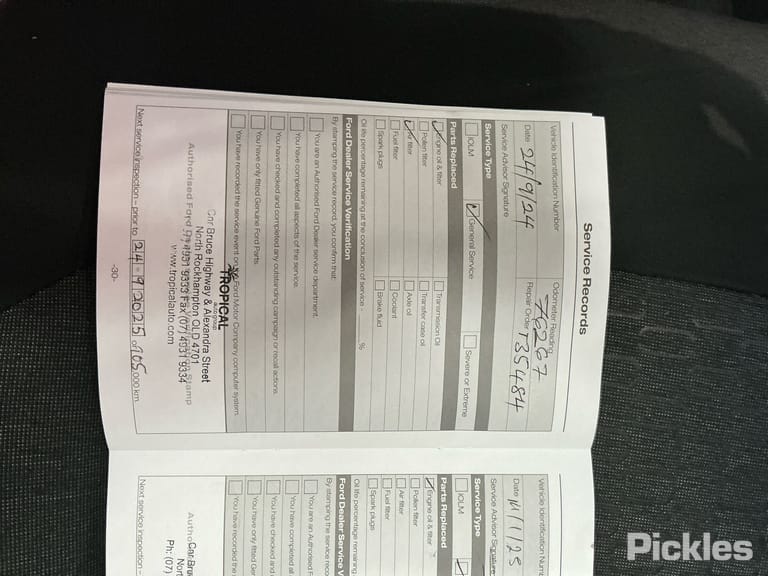 Service Records
Vehicle Identification Number
Odometer Reading 76267
Date 24/9/24
Repair Order T35484
Service Advisor Signature
Service Type
IOLM
General Service
Severe or Extreme
Parts Replaced
Engine oil & filter
Transmission Oil
Pollen filter
Transfer case oil
Air filter
Axle oil
Fuel filter
Coolant
Spark plugs
Brake fluid
Oil life percentage remaining at the conclusion of service – %
Ford Dealer Service Verification
By stamping the service record, you confirm that:
You are an Authorised Ford Dealer service department.
You have completed all aspects of the service.
You have checked and completed any outstanding campaign or recall actions.
You have only fitted Genuine Ford Parts.
You have recorded the service event on the Ford Motor Company computer system.
TROPICAL
Cnr Bruce Highway & Alexandra Street
North Rockhampton QLD 4701
Authorised Ford Dealer Stamp
4931 9333 Fax (07) 4931 9334
www.tropicalauto.com
Next service inspection – prior to 24-9 2025 or 105,000 km.
-30-
Vehicle Identification Num
Date 11/1/25
Service Advisor Signature
Service Type
IOLM
Parts Replaced
Engine oil & filter
Pollen filter
Air filter
Fuel filter
Spark plugs
Oil life percentage remaining
Ford Dealer Service V
By stamping the service reco
You are an Authorised F
You have completed all
You have checked and
You have only fitted Gen
You have recorded the
Cnr Bru
Nor
Autho
Ph: (07)
Next service inspection –
Pickles